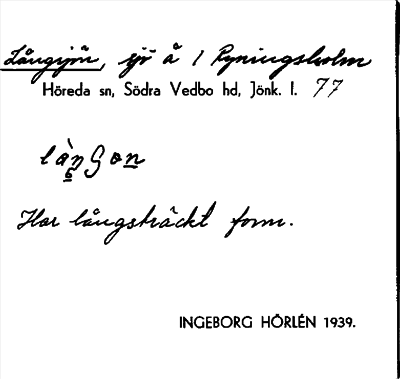 Långsjön, sjö å 1 Ryningsholm
Höreda sn, Södra Vedbo hd, Jönk. l. 77
Har långsträckt form.
INGEBORG HÖRLÉN 1939.